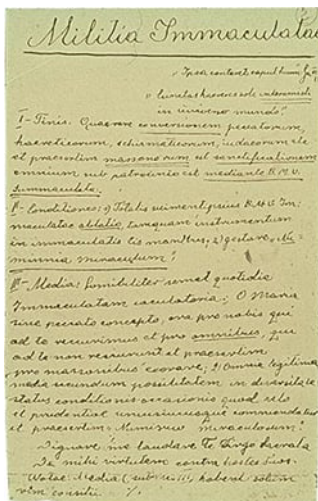 Militia Immaculatae
„Ipsa conteret caput tuum"
„Cunctas haereses sola interemisti
in universo mundo"
I – Finis: Quaerere conversionem peccatorum,
haereticorum, schismaticorum, iudaeorum etc
et praesertim massonorum et sanctificationem
omnium sub patrocinio et mediante B.M.V.
Immaculata.
II – Conditiones: 1) Totalis suimetipsius B.M.V. Im-
maculatae oblatio, tamquam instrumentum
in immaculatis eius manibus; 2) gestare „Nu-
misma miraculosum"
III – Media: 1) semel quotidie
Immaculatam iaculatoria: O Maria
sine peccato concepta, ora pro nobis qui
ad te recurrimus et pro omnibus, qui
ad te non recurrunt et praesertim
pro massonibus; 2) Omnia legitima
media secundum possibilitatem in diversitate
status conditionis occasionis quod zelo
et prudentiae uniuscuiusque commendatur
et praesertim: Numisma miraculosum.
Dignare me laudare Te Virgo Sacrata
Da mihi virtutem contra hostes tuos.
Notae: Media habent solum
vim consilii